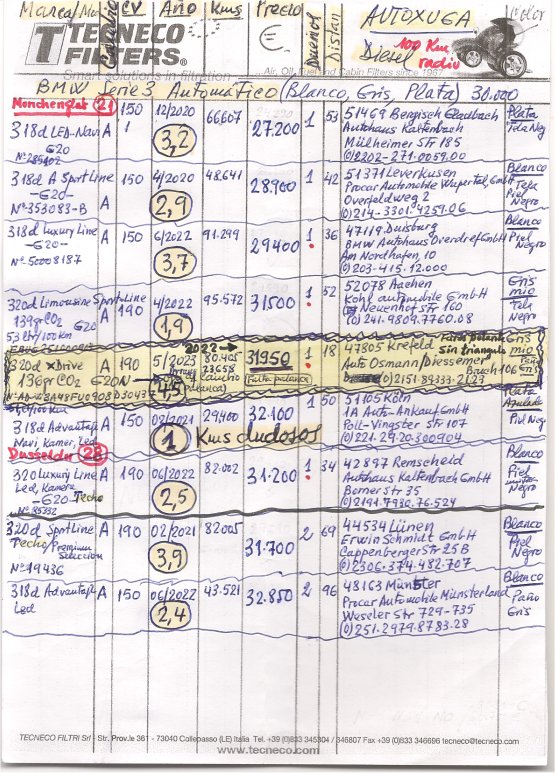 Marca/Mo Cambio CV Año Kms Precio € Dueños Distan AUTOXUGA Color
TECNECO
FILTERS®
Diesel 100 Km radio
Smart solutions in filtration
Air, Oil, Fuel and Cabin Filters since 1987
BMW Serie 3 Automático (Blanco, Gris, Plata) 30.000
Monchenglat 21
318d LED-Navi A 150 12/2020 66607 27.200 1 53 51469 Bergisch Gladbach Plata
G20 3,2 Autohaus Kaltenbach Tela Neg
Nº 285402 Mülheimer Str 185
(0)2202-271.0059.00
318d A SportLine 150 4/2020 48.641 28.900 1 42 51371 Leverkusen Blanco
-G20- 2,9 Procar Automobile Wupertal GmbH Tela
Nº 353083-B A Overfeldweg 2 Piel
(0)214-3301.4259.06 Negro
318d Luxury Line A 150 6/2022 91.299 29400 1 36 47119 Duisburg Blanco
-G20- 3,7 BMW Autohaus Overdref GmbH Piel
Nº 50008187 Am Nordhafen, 10 Negro
(0)203-415.12.000
320d Limousine Sport-Line A 190 4/2022 95.572 31500 1 52 52078 Aachen Gris
139gr CO2 G20 1,9 Kohl automobile GmbH mio
53 ltr/100 km Neuenhof Str 160 Tela
(0)241.9809.7760.08 Negro
2022 → Falta palanca Gris
320d xDrive A 190 5/2023 80.405 31950 1 18 47805 Krefeld sin triangulo mio
136gr CO2 G20N 4,5 23658 Falta palanca Auto Osmann/Diessemer
Bruch 106
(0)2151-89333-2123
318d Advantage A 150 08/2021 29,400 32.100 1 50 51105 Köln Plata
Navi, Kamer, Led 1 Kms dudosos 1A Auto-Ankauf GmbH Azulada
Poll-Vingster Str 107 Piel Neg
(0)221.29.20.300904
Dusseldor 28
320 Luxury Line A 190 06/2022 82.002 31.200 1 34 42897 Remscheid Blanco
Led, Kamera 2,5 Autohaus Kaltenbach GmbH Piel
-G20 Techo Borner Str 35 Negro
Nº 85332 (0)2191.7930.76.524
320d SportLine A 190 02/2021 82005 31.700 2 69 44534 Lünen Blanco
Techo/Premium 3,9 Erwin Schmidt GmbH Piel
Seleccion Cappenberger Str 25B Negro
Nº 19436 (0)2306.374.482.707
318d Advantage A 150 06/2022 43.521 32.850 2 96 48163 Münster Blanco
Led 2,4 Procar Automobile Münsterland Paño
Weseler Str 729-735 Gris
(0)251.2979.8783.28
TECNECO FILTRI Srl - Str. Prov.le 361 - 73040 Collepasso (LE) Italia Tel. +39 (0)833 345304 / 346807 Fax +39 (0)833 346696 tecneco@tecneco.com
www.tecneco.com